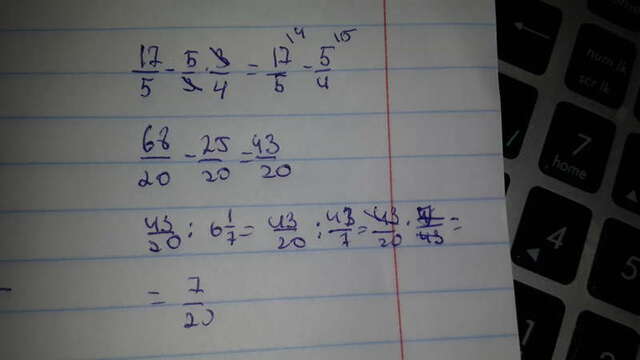 17/5 - 5/3 · 3/4 = 17/5 \4 - 5/4 \5
68/20 - 25/20 = 43/20
43/20 : 6 1/7 = 43/20 : 43/7 = 43/20 · 7/43 =
= 7/20
num lk
scr lk
7
home
4
5
1
2